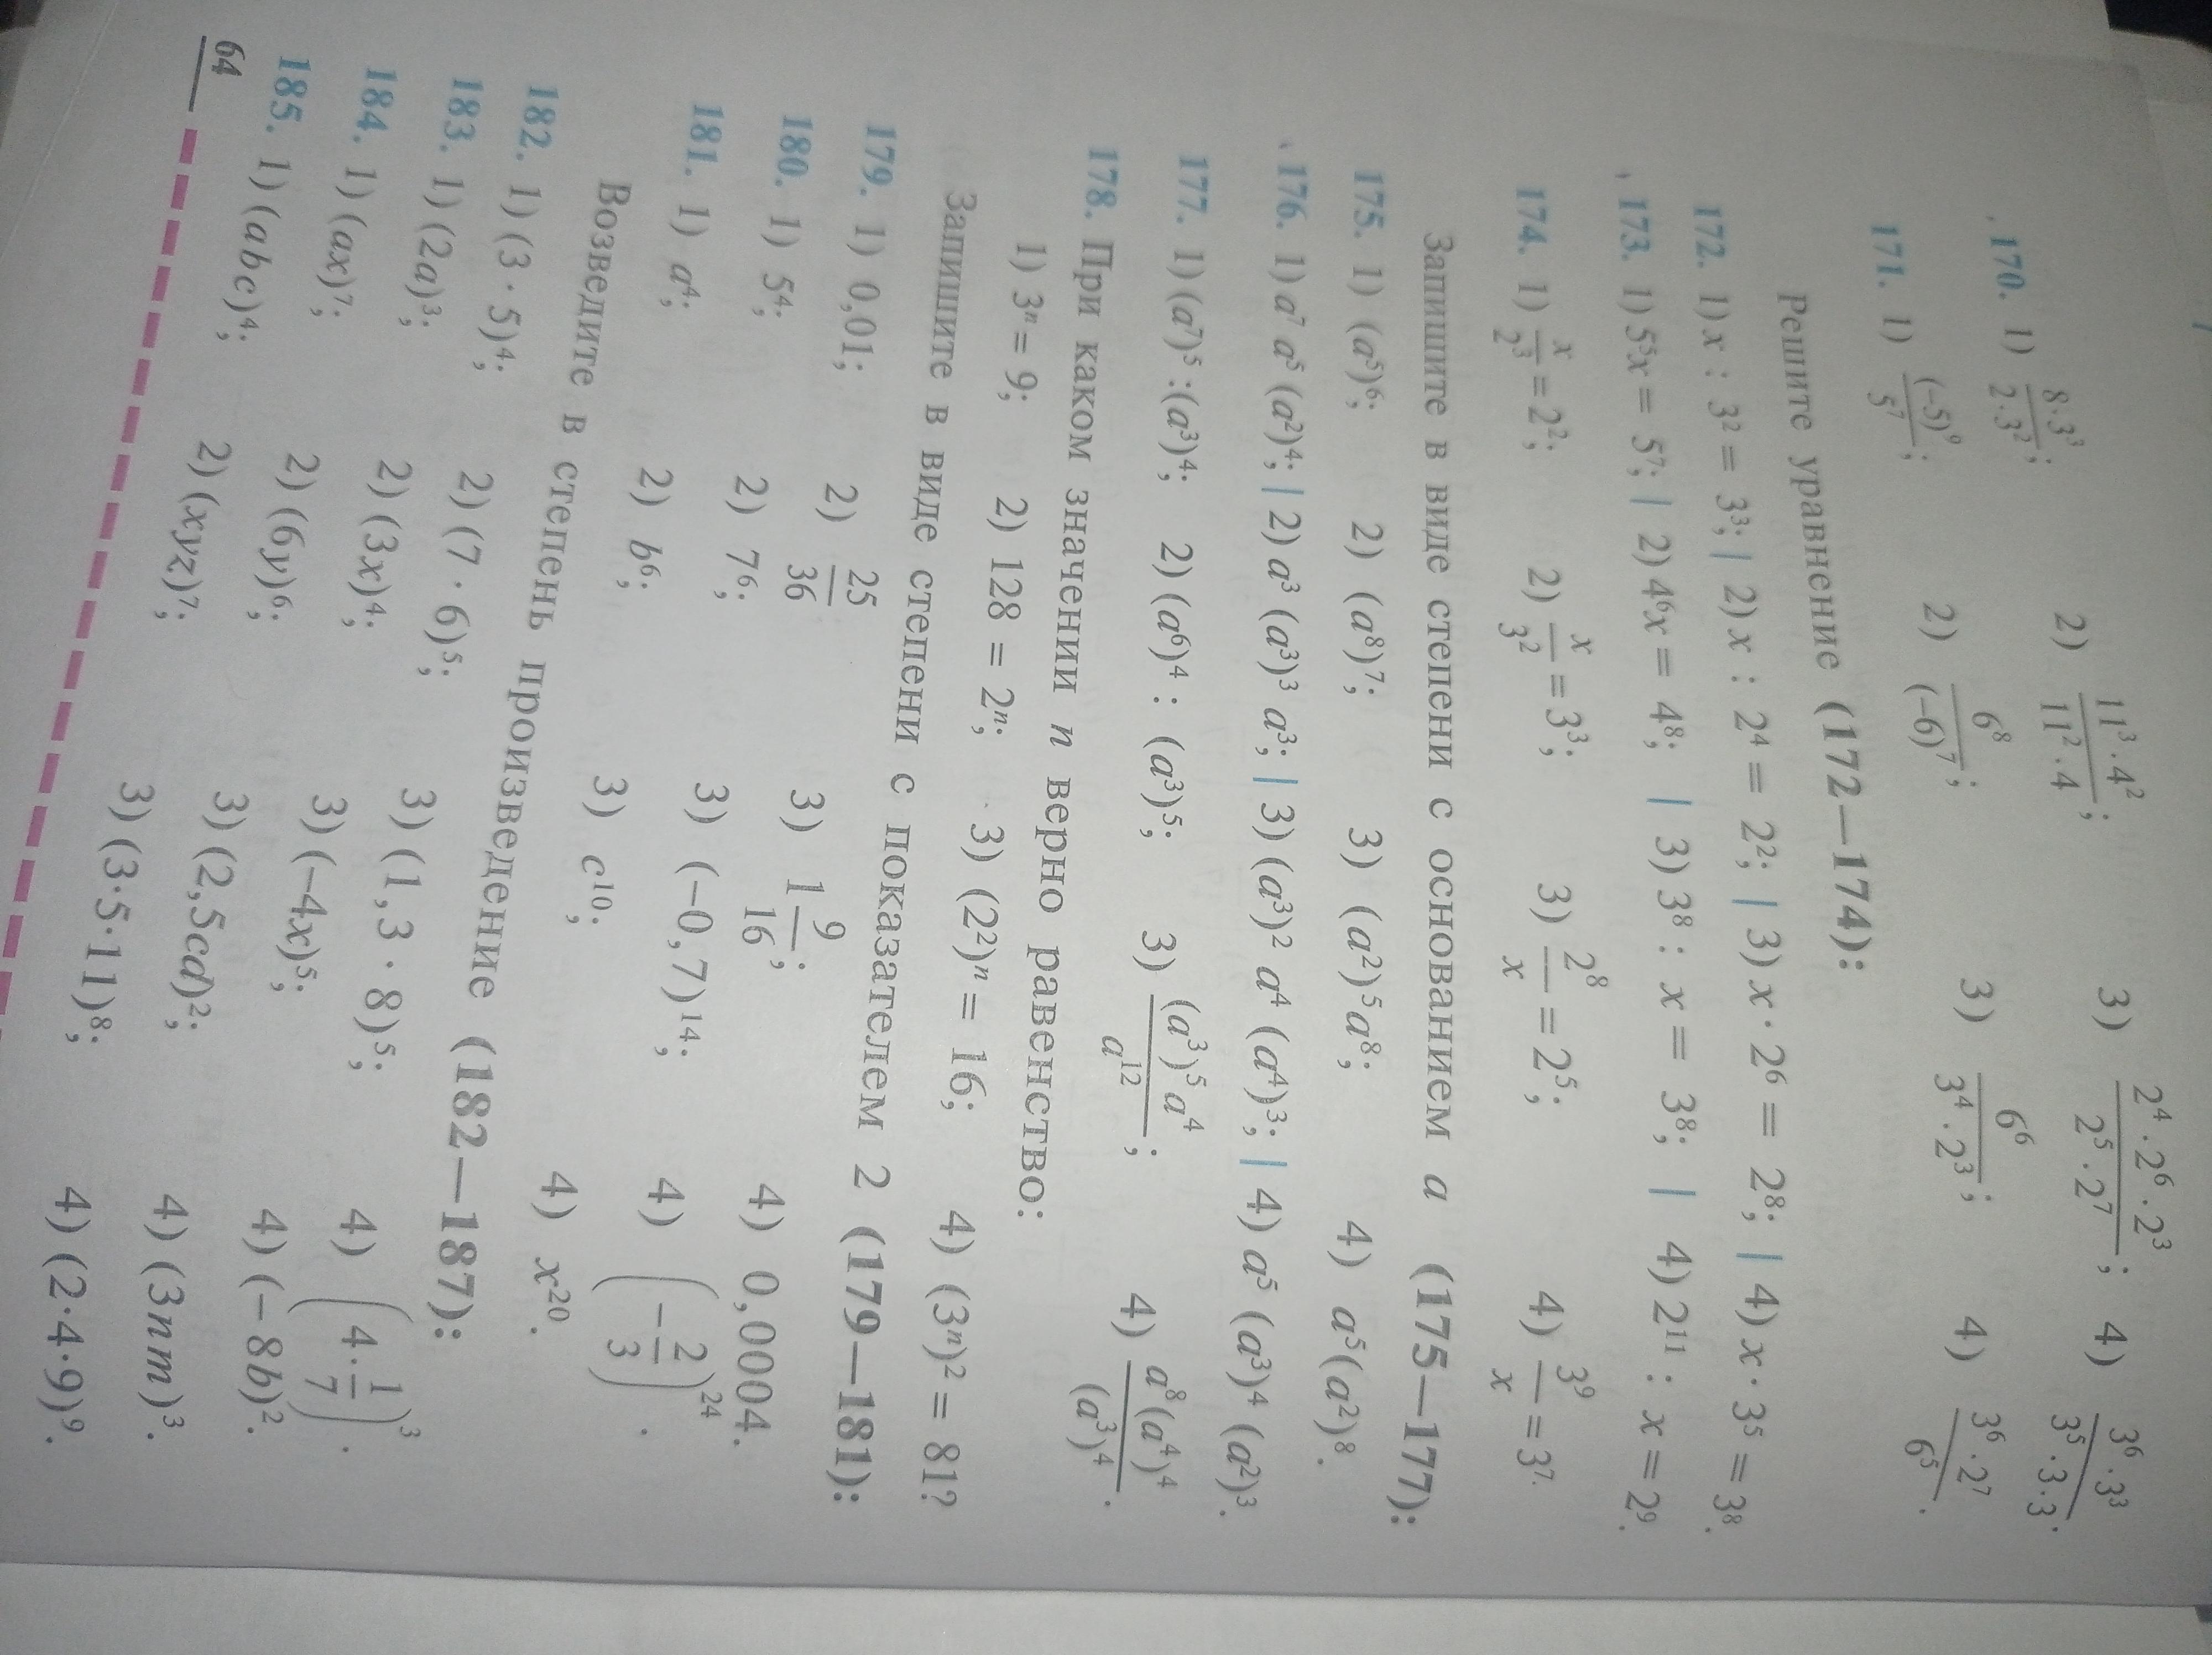 170. 1) $\frac{8 \cdot 3^3}{2 \cdot 3^2}$; 2) $\frac{11^3 \cdot 4^2}{11^2 \cdot 4}$; 3) $\frac{2^4 \cdot 2^6 \cdot 2^3}{2^5 \cdot 2^7}$; 4) $\frac{3^6 \cdot 3^3}{3^5 \cdot 3 \cdot 3}$.
171. 1) $\frac{(-5)^9}{5^7}$; 2) $\frac{6^8}{(-6)^7}$; 3) $\frac{6^6}{3^4 \cdot 2^3}$; 4) $\frac{3^6 \cdot 2^7}{6^5}$.
Решите уравнение (172—174):
172. 1) x : 3² = 3³; | 2) x : 2⁴ = 2²; | 3) x · 2⁶ = 2⁸; | 4) x · 3⁵ = 3⁸.
173. 1) 5⁵x = 5⁷; | 2) 4⁶x = 4⁸; | 3) 3⁸ : x = 3⁸; | 4) 2¹¹ : x = 2⁹.
174. 1) $\frac{x}{2^3}$ = 2²; 2) $\frac{x}{3^2}$ = 3³; 3) $\frac{2^8}{x}$ = 2⁵; 4) $\frac{3^9}{x}$ = 3⁷.
Запишите в виде степени с основанием a (175—177):
175. 1) (a⁵)⁶; 2) (a⁸)⁷; 3) (a²)⁵a⁸; 4) a⁵(a²)⁸.
176. 1) a⁷ a⁵ (a²)⁴; | 2) a³ (a³)³ a³; | 3) (a³)² a⁴ (a⁴)³; | 4) a⁵ (a³)⁴ (a²)³.
177. 1) (a⁷)⁵ : (a³)⁴; 2) (a⁶)⁴ : (a³)⁵; 3) $\frac{(a^3)^5 a^4}{a^{12}}$; 4) $\frac{a^8 (a^4)^4}{(a^3)^4}$.
178. При каком значении n верно равенство:
1) 3ⁿ = 9; 2) 128 = 2ⁿ; 3) (2²)ⁿ = 16; 4) (3ⁿ)² = 81?
Запишите в виде степени с показателем 2 (179—181):
179. 1) 0,01; 2) $\frac{25}{36}$ 3) $1\frac{9}{16}$; 4) 0,0004.
180. 1) 5⁴; 2) 7⁶; 3) (−0,7)¹⁴; 4) $\left(-\frac{2}{3}\right)^{24}$.
181. 1) a⁴; 2) b⁶; 3) c¹⁰; 4) x²⁰.
Возведите в степень произведение (182—187):
182. 1) (3 · 5)⁴; 2) (7 · 6)⁵; 3) (1,3 · 8)⁵; 4) $\left(4 \cdot \frac{1}{7}\right)^3$.
183. 1) (2a)³; 2) (3x)⁴; 3) (−4x)⁵; 4) (−8b)².
184. 1) (ax)⁷; 2) (6y)⁶; 3) (2,5cd)²; 4) (3nm)³.
185. 1) (abc)⁴; 2) (xyz)⁷; 3) (3·5·11)⁸; 4) (2·4·9)⁹.
64